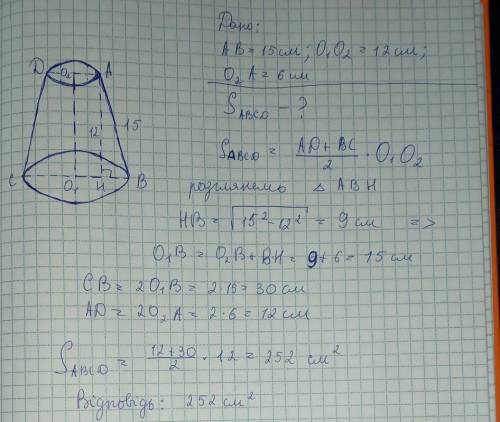 Дано:
AB = 15 см; O₁O₂ = 12 см;
O₂A = 6 см
S_ABCD - ?
S_ABCD = (AD + BC)/2 · O₁O₂
розглянемо △ ABH
HB = √(15² - 12²) = 9 см =>
O₁B = O₂B + BH = 9 + 6 = 15 см
CB = 2O₁B = 2·15 = 30 см
AD = 2O₂A = 2·6 = 12 см
S_ABCD = (12+30)/2 · 12 = 252 см²
Відповідь: 252 см²
D O₂ A
12 15
C O₁ H B